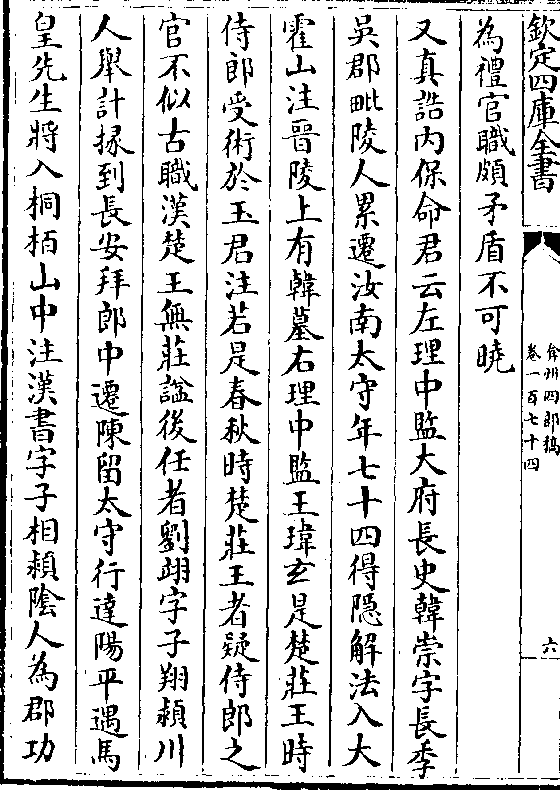 欽定四庫全書
弇州四部稿
卷一百七十四
六
為禮官職頗矛盾不可曉
又真誥内保命君云左理中監大府長史韓崇字長季
吳郡毗陵人累遷汝南太守年七十四得隠解法入大
霍山注晉陵上有韓墓右理中監王瑋玄是楚莊王時
侍郎受術於玉君注若是春秋時楚莊王者疑侍郎之
官不似古職漢楚王無莊諡後任者劉翊字子翔潁川
人舉計掾到長安拜郎中遷陳留太守行達陽平遇馬
皇先生將入桐栢山中注漢書字子相潁隂人為郡功